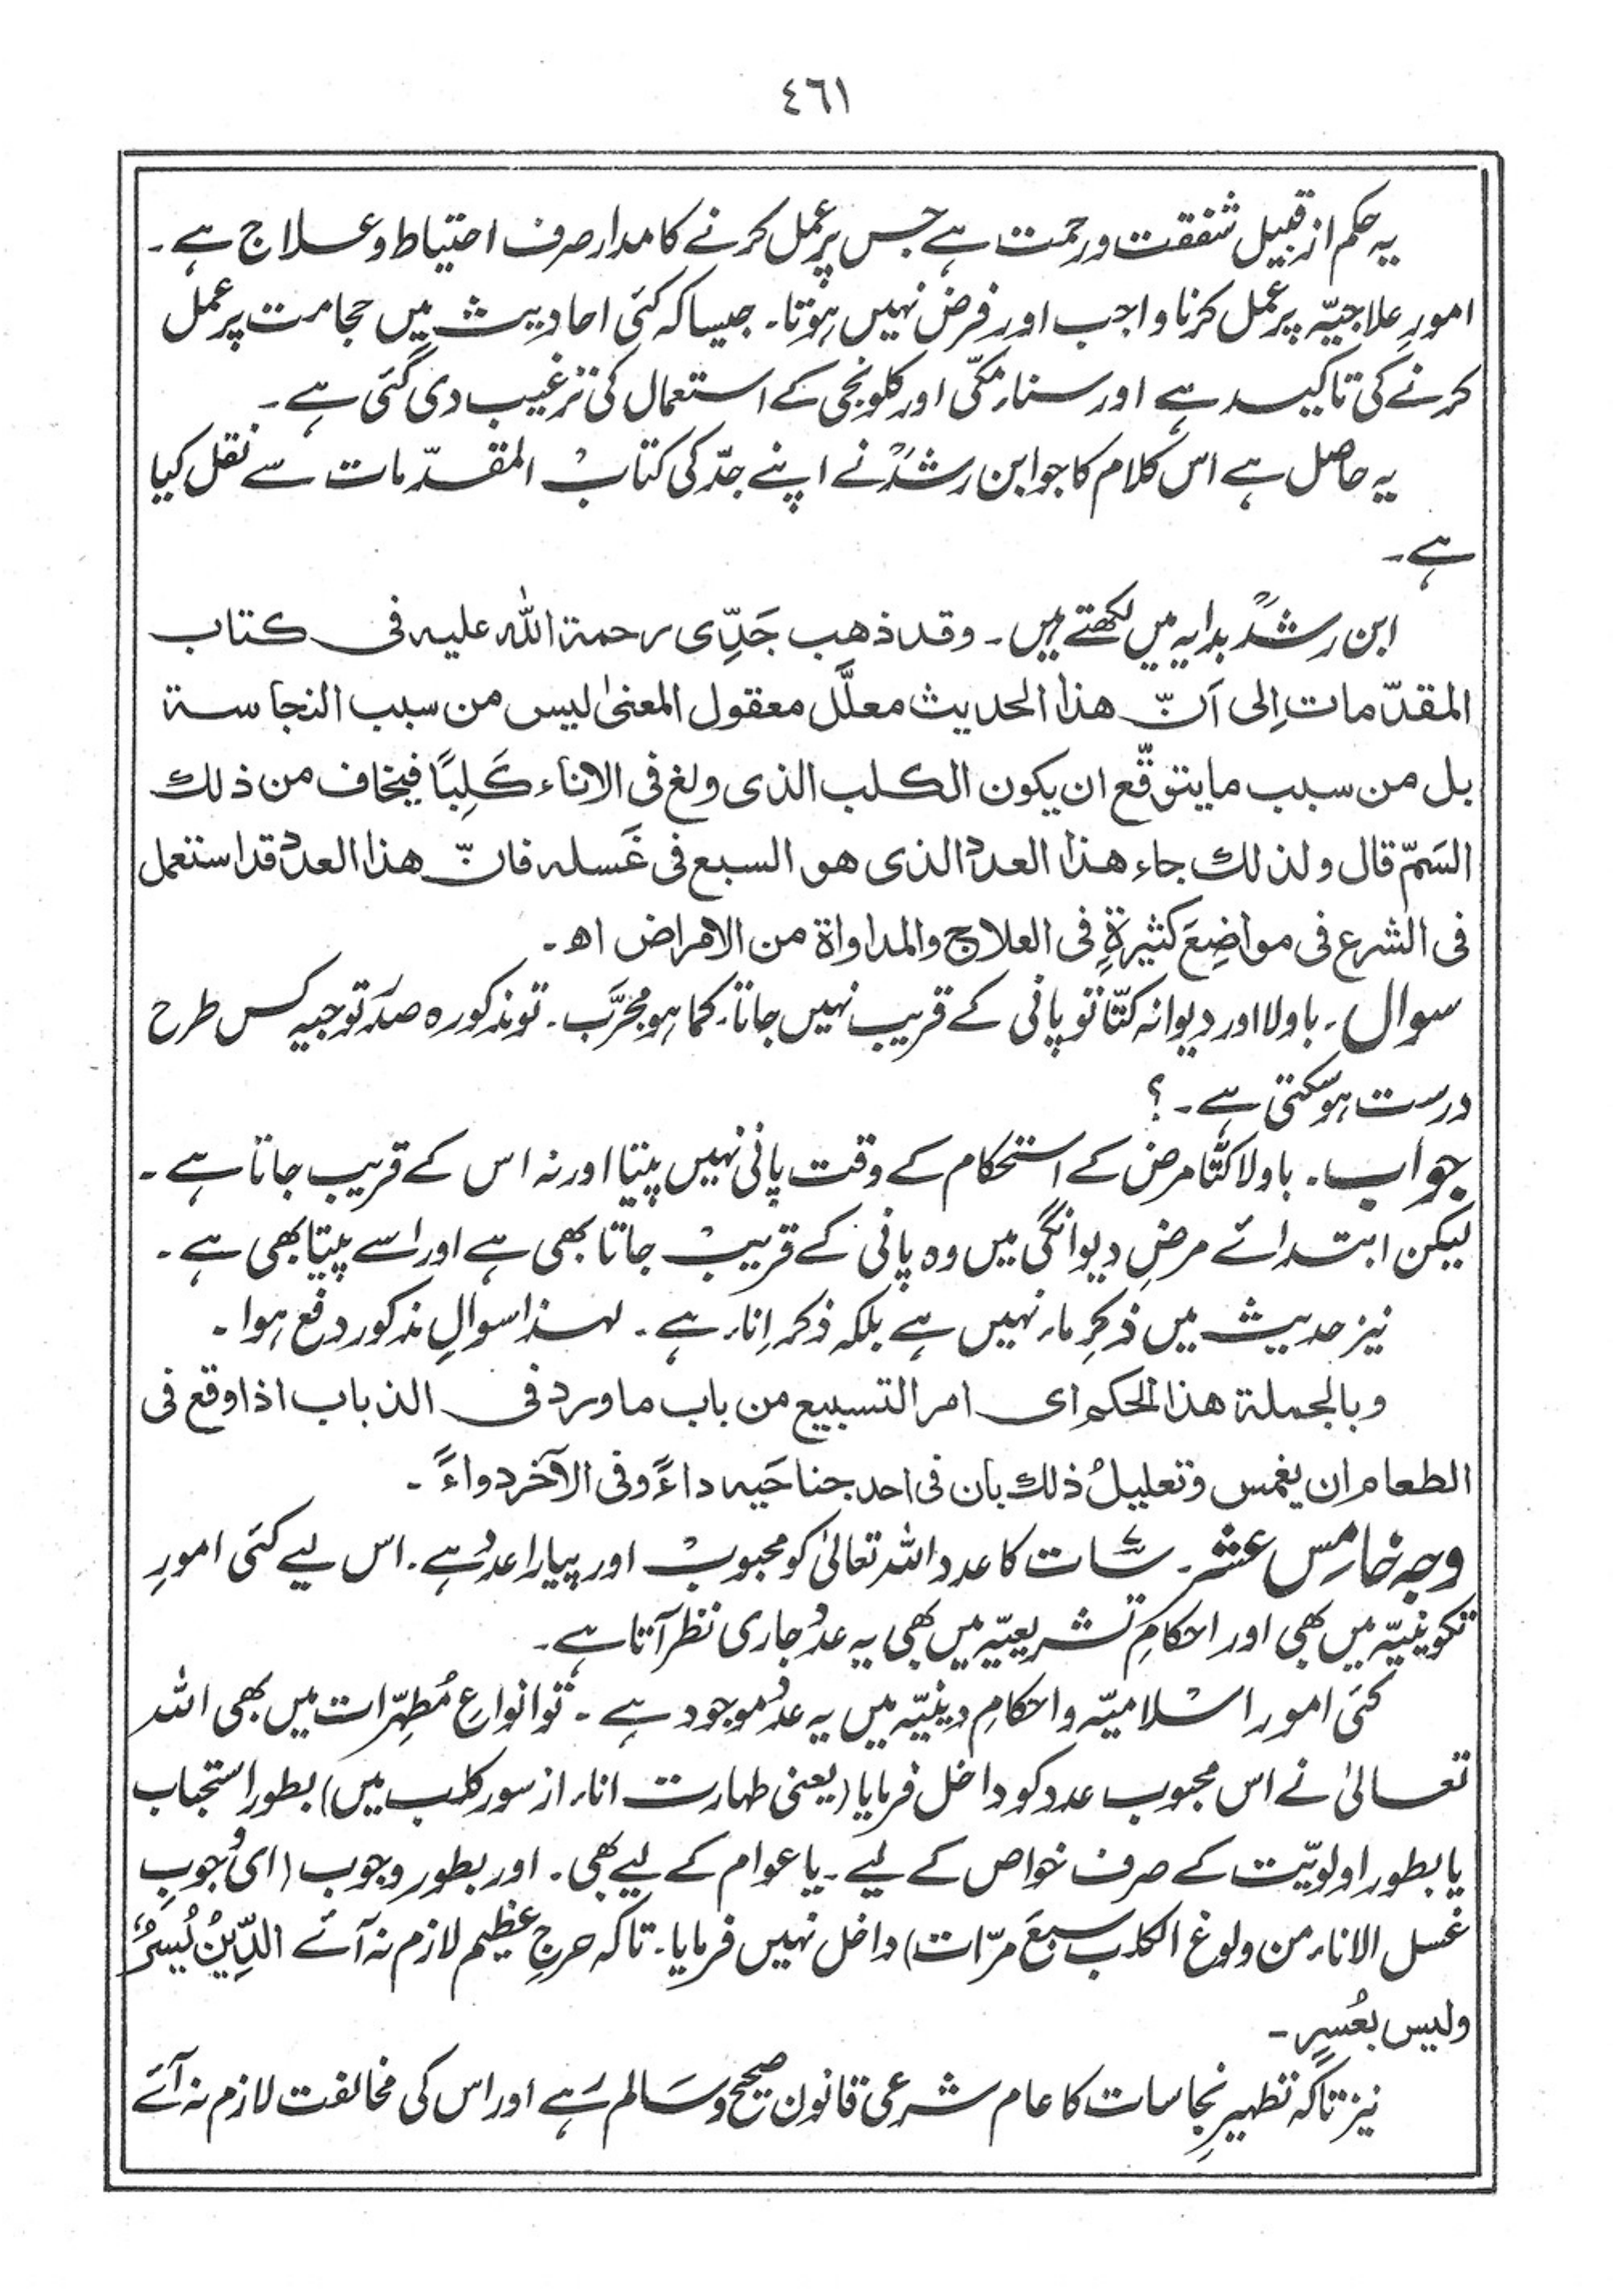 ٤٦١
یہ حکم از قبیل شفقت و رحمت ہے جس پر عمل کرنے کا مدار صرف احتیاط و علاج ہے۔
امورِ علاجیّہ پر عمل کرنا واجب اور فرض نہیں ہوتا۔ جیسا کہ کئی احادیث میں حجامت پر عمل
کرنے کی تاکید ہے اور سناء مکّی اور کلونجی کے استعمال کی ترغیب دی گئی ہے۔
یہ حاصل ہے اس کلام کا جو ابن رشدؒ نے اپنے جدّ کی کتاب المقدّمات سے نقل کیا
ہے۔
ابن رشدؒ بدایہ میں لکھتے ہیں۔ وقد ذھب جَدِّی رحمة اللہ علیہ فی کتاب
المقدّمات اِلی اَنّ ھذا الحدیث معلَّل معقول المعنیٰ لیس من سبب النجاسة
بل من سبب ما یتوقّع ان یکون الکلب الذی ولغ فی الاناء کَلِبًا فیخاف من ذلك
السَمّ قال ولذلك جاء ھذا العدد الذی ھو السبع فی غَسلہ فانّ ھذا العدد قد استعمل
فی الشرع فی مواضِعَ کثیرةٍ فی العلاج والمداواة من الامراض اھ۔
سوال۔ باولا اور دیوانہ کتّا تو پانی کے قریب نہیں جاتا۔ کما ہو مجرَّب۔ تو مذکورہ صدَر توجیہ کس طرح
درست ہوسکتی ہے۔؟
جواب۔ باولا کتّا مرض کے استحکام کے وقت پانی نہیں پیتا اور نہ اس کے قریب جاتا ہے۔
لیکن ابتدائے مرضِ دیوانگی میں وہ پانی کے قریب جاتا بھی ہے اور اسے پیتا بھی ہے۔
نیز حدیث میں ذکرِ ماء نہیں ہے بلکہ ذکر اِناء ہے۔ لہذا سوالِ مذکور دفع ہوا۔
وبالجملة ھذا الحکم ای امر التسبیع من باب ما ورد فی الذباب اذا وقع فی
الطعام ان یغمس وتعلیلُ ذلك بان فی احد جناحَیہ داءً وفی الآخر دواءً۔
وجہ خامس عشر۔ سات کا عدد اللہ تعالیٰ کو محبوب اور پیارا عدد ہے۔ اس لیے کئی امورِ
تکوینیّہ میں بھی اور احکامِ تشریعیّہ میں بھی یہ عدد جاری نظر آتا ہے۔
کئی امور اسلامیّہ و احکامِ دینیّہ میں یہ عدد موجود ہے۔ تو انواعِ مُطہِّرات میں بھی اللہ
تعالیٰ نے اس محبوب عدد کو داخل فرمایا (یعنی طہارت اناء از سور کلب میں) بطور استحباب
یا بطور اولویّت کے صرف خواص کے لیے۔ یا عوام کے لیے بھی۔ اور بطور وجوب (ای وُجوبِ
غسل الاناء من ولوغ الکلب سبعَ مرّات) داخل نہیں فرمایا۔ تاکہ حرجِ عظیم لازم نہ آئے الدِّینُ یُسرٌ
ولیس بعُسرٍ۔
نیز تاکہ تطہیرِ نجاسات کا عام شرعی قانون صحیح و سالم رہے اور اس کی مخالفت لازم نہ آئے